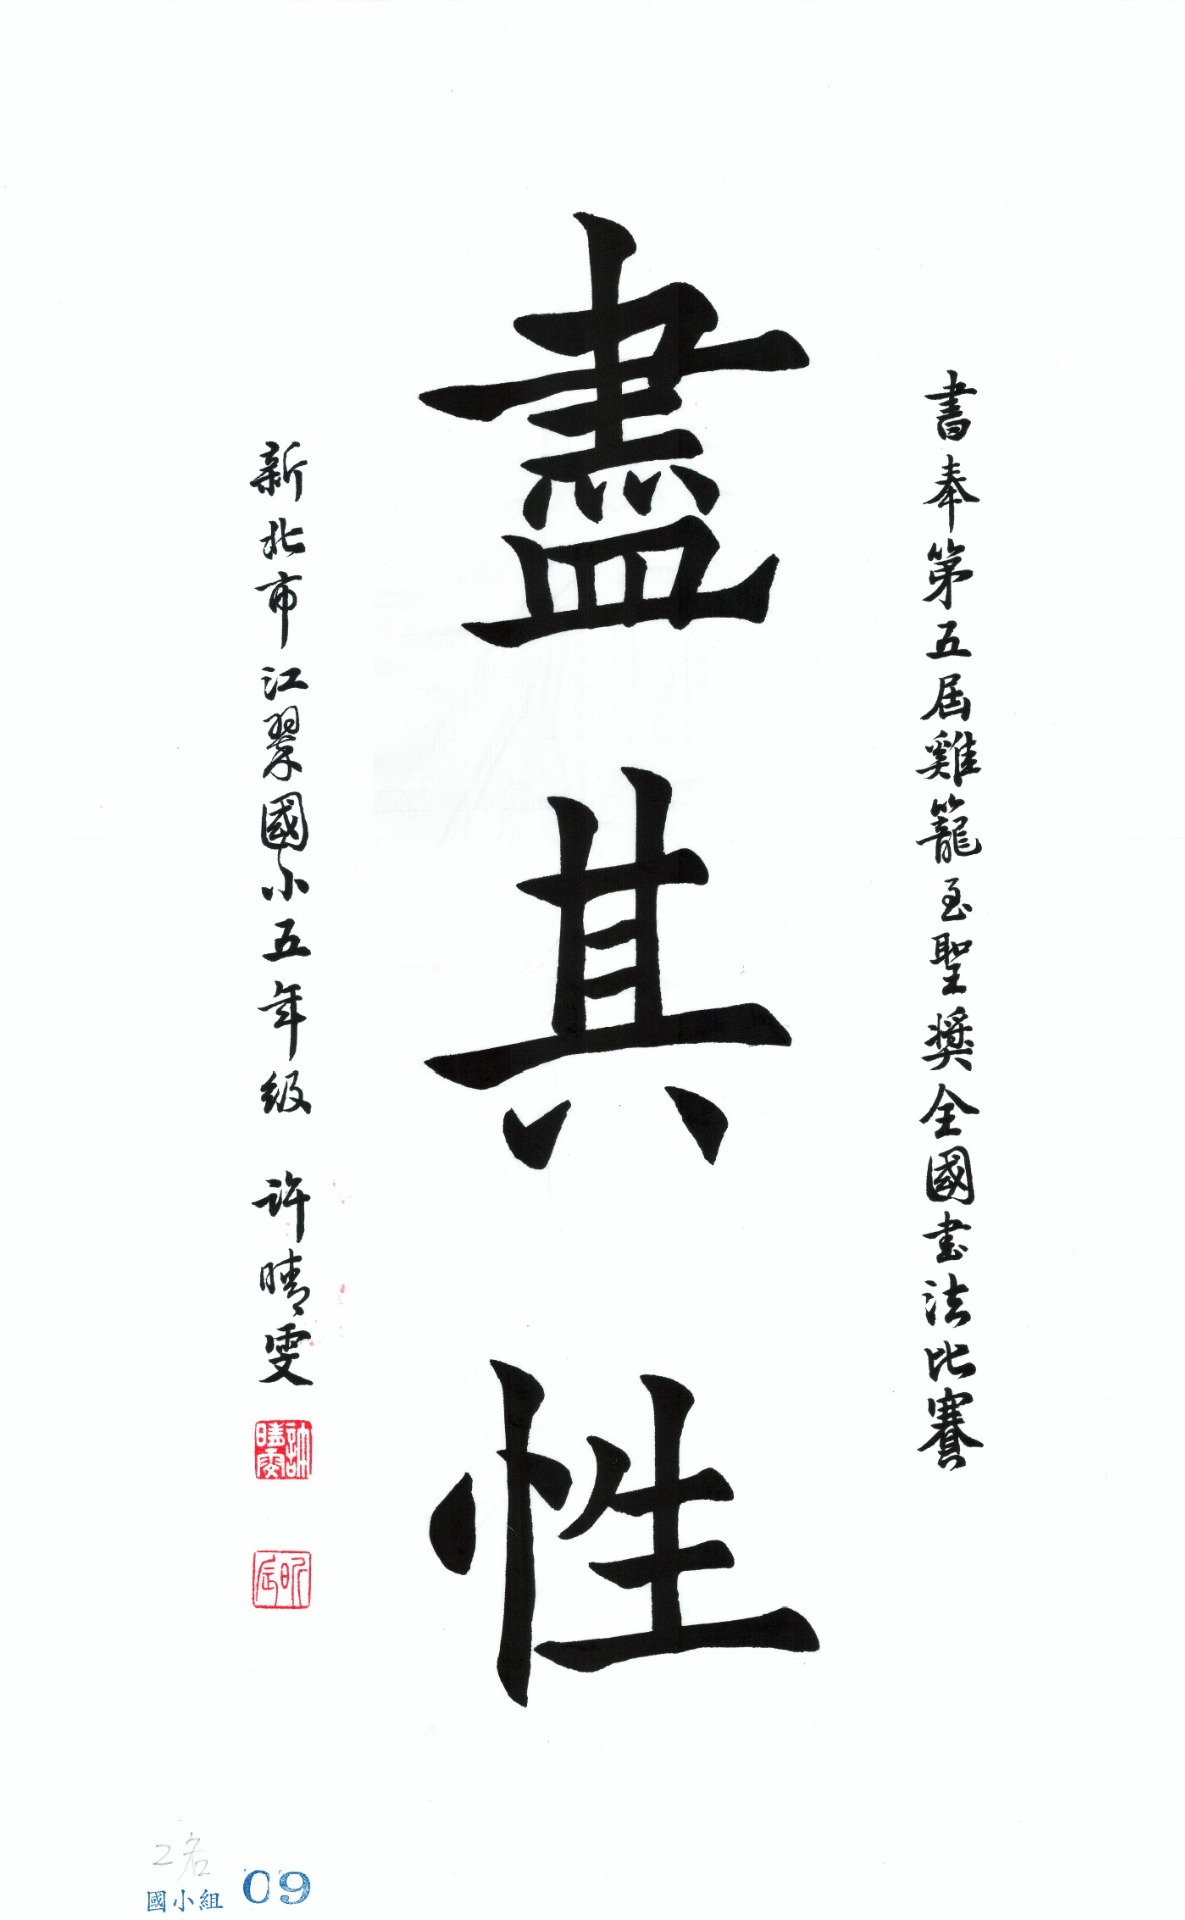 書奉第五屆雞籠至聖獎全國書法比賽
盡其性
新北市江翠國小五年級 許晴雯
許晴雯
昕辰
2名
國小組 09